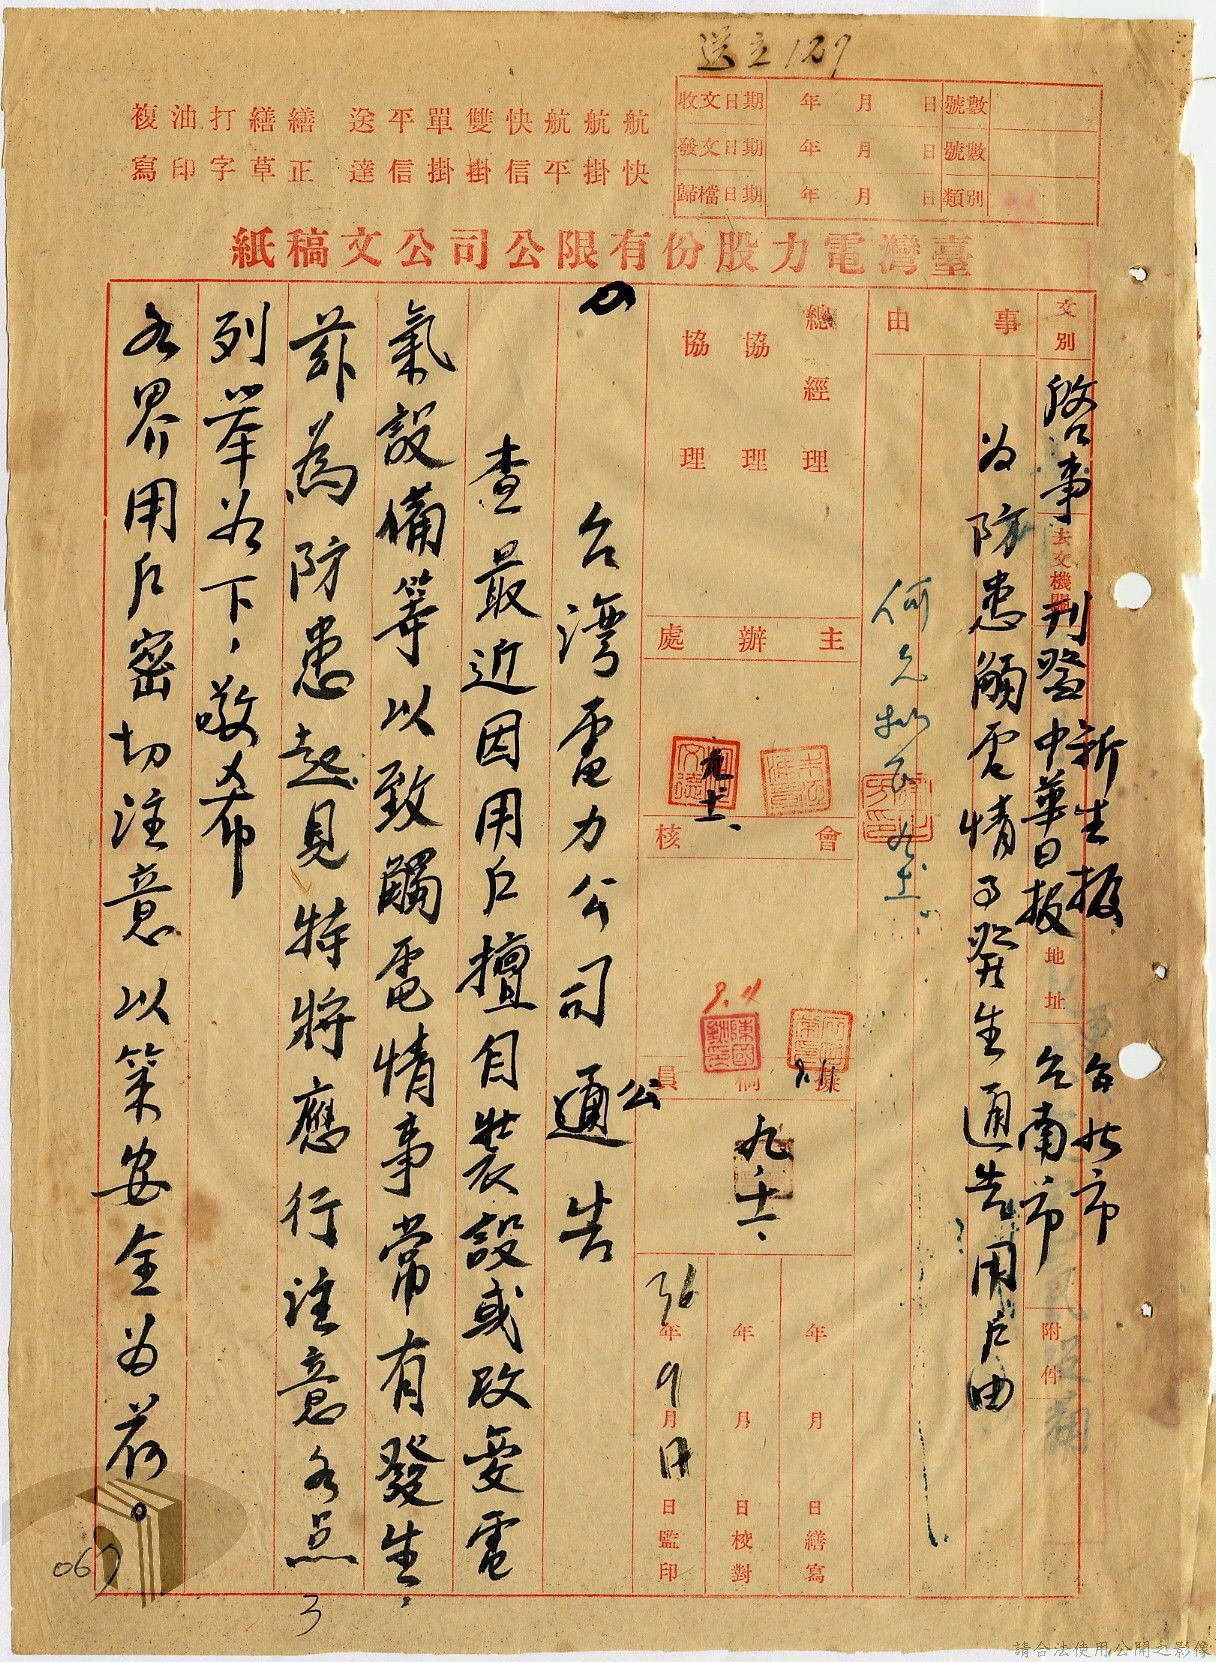 送立129
收文日期 年 月 日 號數
發文日期 年 月 日 號數
歸檔日期 年 月 日 類別
航快 航掛 航平 快信 雙掛 單掛 平信 送達 繕正 繕草 打字 油印 複寫
臺灣電力股份有限公司公文稿紙
文別 啓事
去文機關 刊登 新生報 中華日報
地址 台北市 台南市
附件
事由
為防患觸電情事發生通告用戶由
總經理
協理
協理
主辦處
會核
擬稿員
9.4
9.11
九、十一、
年 月 日繕寫
年 月 日校對
36年9月 日監印
台灣電力公司通公告
查最近因用戶擅自裝設或改變電
氣設備等以致觸電情事常有發生，
茲為防患起見特將應行注意各点
列举如下，敬希
各界用戶密切注意以策安全為荷。
069
3
請合法使用公開之影像